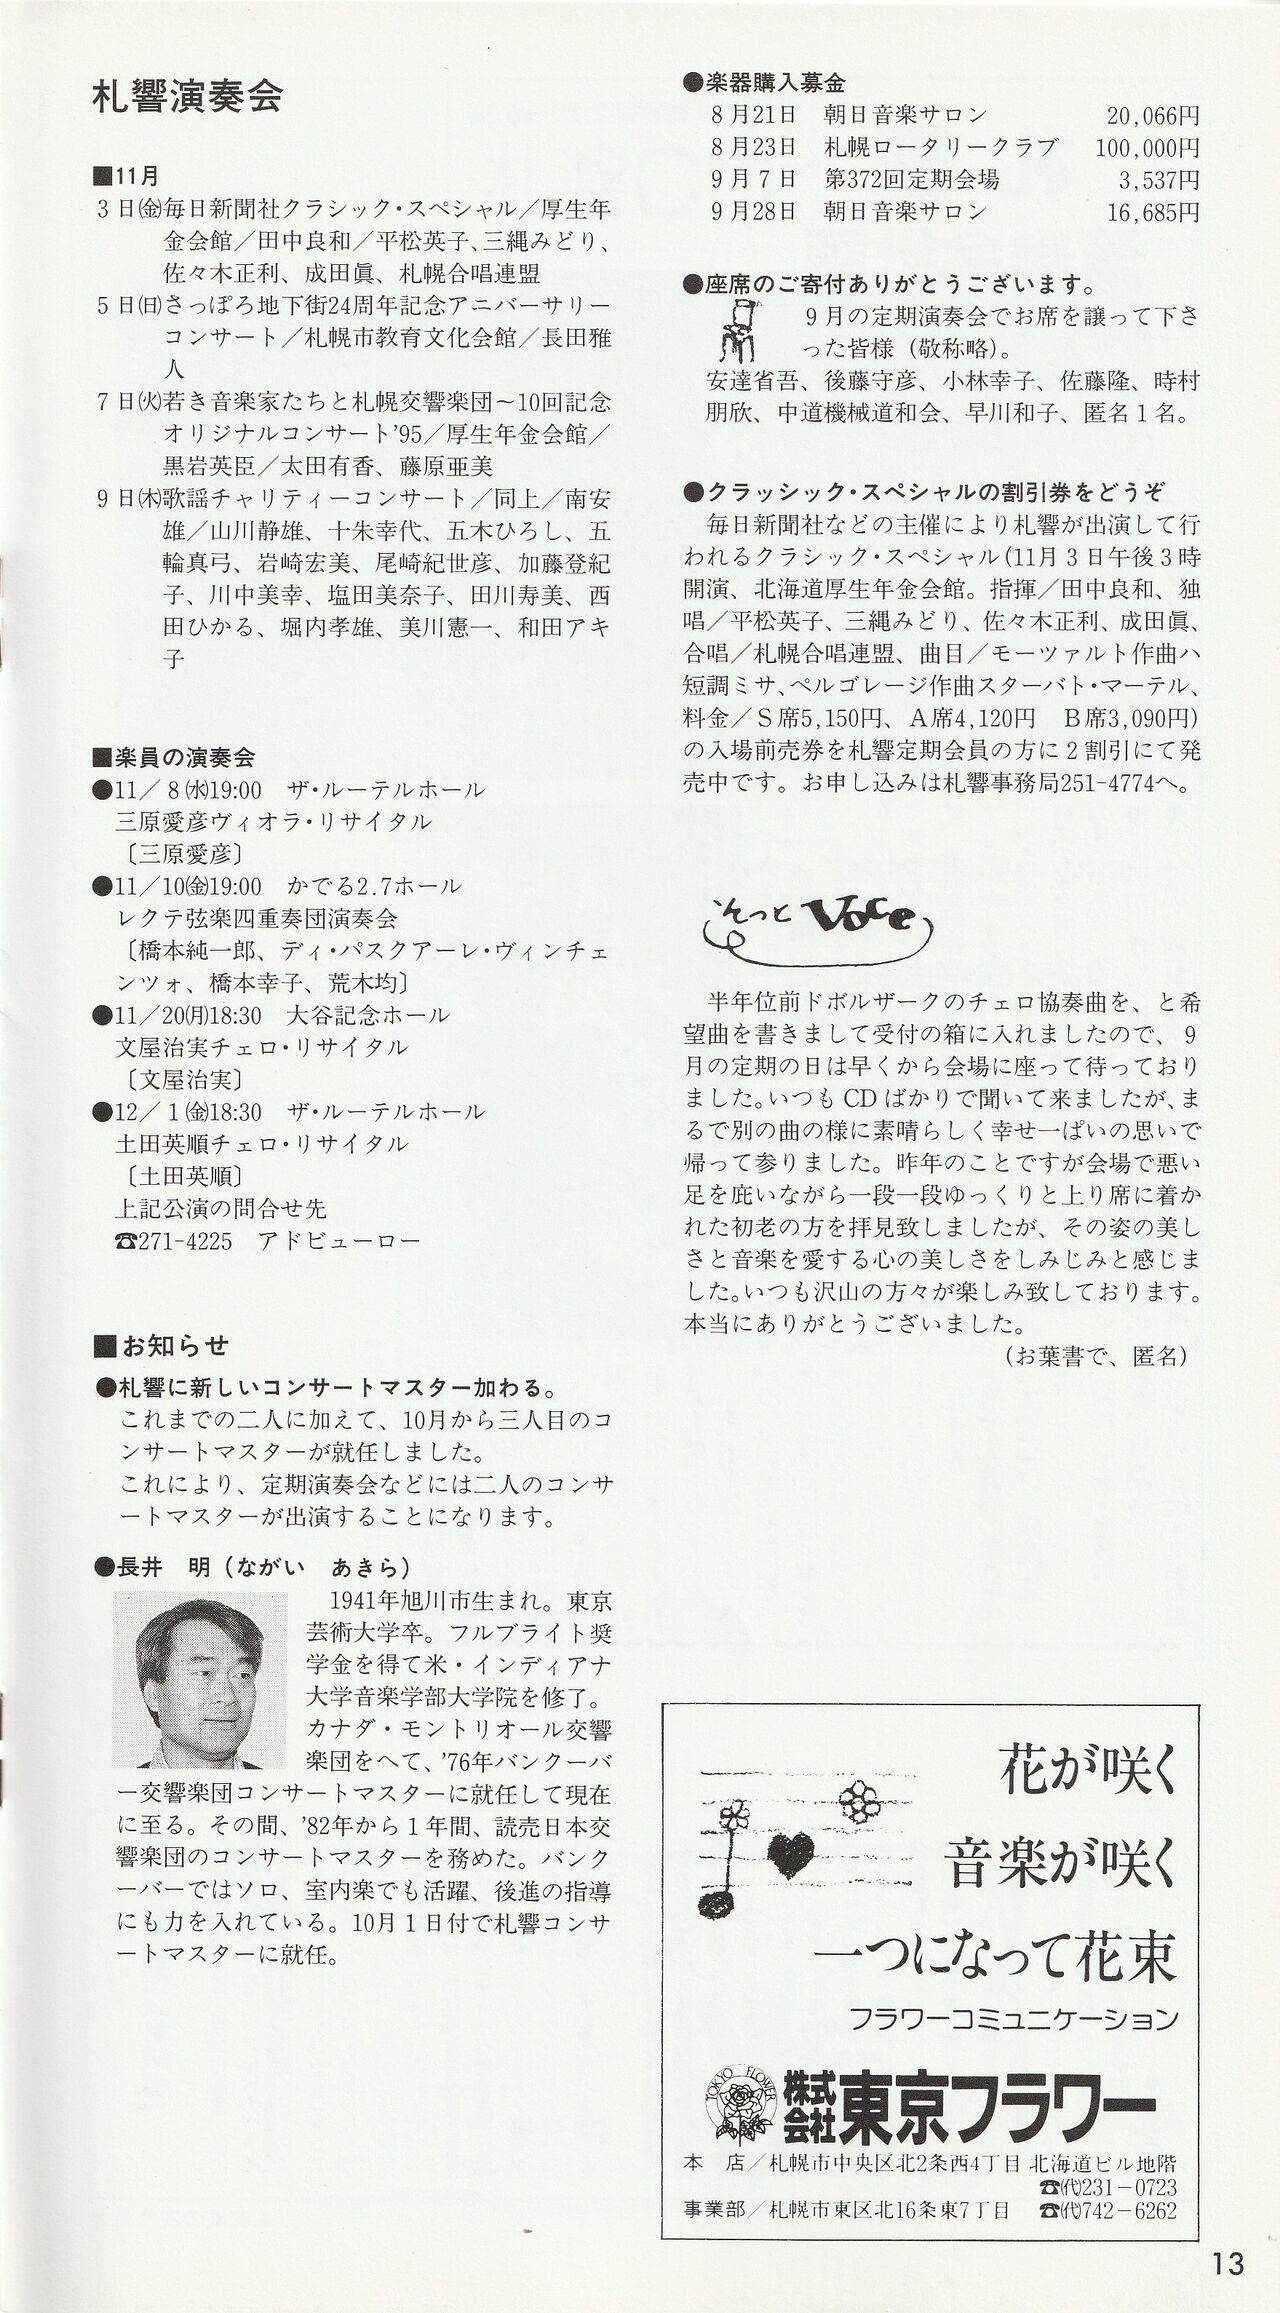 札響演奏会
■11月
3日㈮毎日新聞社クラシック・スペシャル／厚生年
金会館／田中良和／平松英子、三縄みどり、
佐々木正利、成田眞、札幌合唱連盟
5日㈰さっぽろ地下街24周年記念アニバーサリー
コンサート／札幌市教育文化会館／長田雅
人
7日㈫若き音楽家たちと札幌交響楽団～10回記念
オリジナルコンサート’95／厚生年金会館／
黒岩英臣／太田有香、藤原亜美
9日㈭歌謡チャリティーコンサート／同上／南安
雄／山川静雄、十朱幸代、五木ひろし、五
輪真弓、岩崎宏美、尾崎紀世彦、加藤登紀
子、川中美幸、塩田美奈子、田川寿美、西
田ひかる、堀内孝雄、美川憲一、和田アキ
子
■楽員の演奏会
●11／8㈬19:00　ザ・ルーテルホール
三原愛彦ヴィオラ・リサイタル
〔三原愛彦〕
●11／10㈮19:00　かでる2.7ホール
レクテ弦楽四重奏団演奏会
〔橋本純一郎、ディ・パスクアーレ・ヴィンチェ
ンツォ、橋本幸子、荒木均〕
●11／20㈪18:30　大谷記念ホール
文屋治実チェロ・リサイタル
〔文屋治実〕
●12／1㈮18:30　ザ・ルーテルホール
土田英順チェロ・リサイタル
〔土田英順〕
上記公演の問合せ先
☎271-4225　アドビューロー
■お知らせ
●札響に新しいコンサートマスター加わる。
これまでの二人に加えて、10月から三人目のコ
ンサートマスターが就任しました。
これにより、定期演奏会などには二人のコンサ
ートマスターが出演することになります。
●長井　明（ながい　あきら）
1941年旭川市生まれ。東京
芸術大学卒。フルブライト奨
学金を得て米・インディアナ
大学音楽学部大学院を修了。
カナダ・モントリオール交響
楽団をへて、’76年バンクーバ
ー交響楽団コンサートマスターに就任して現在
に至る。その間、’82年から1年間、読売日本交
響楽団のコンサートマスターを務めた。バンク
ーバーではソロ、室内楽でも活躍、後進の指導
にも力を入れている。10月1日付で札響コンサ
ートマスターに就任。
●楽器購入募金
8月21日　朝日音楽サロン　20,066円
8月23日　札幌ロータリークラブ　100,000円
9月7日　第372回定期会場　3,537円
9月28日　朝日音楽サロン　16,685円
●座席のご寄付ありがとうございます。
9月の定期演奏会でお席を譲って下さ
った皆様（敬称略）。
安達省吾、後藤守彦、小林幸子、佐藤隆、時村
朋欣、中道機械道和会、早川和子、匿名1名。
●クラッシック・スペシャルの割引券をどうぞ
毎日新聞社などの主催により札響が出演して行
われるクラシック・スペシャル（11月3日午後3時
開演、北海道厚生年金会館。指揮／田中良和、独
唱／平松英子、三縄みどり、佐々木正利、成田眞、
合唱／札幌合唱連盟、曲目／モーツァルト作曲ハ
短調ミサ、ペルゴレージ作曲スターバト・マーテル、
料金／S席5,150円、A席4,120円　B席3,090円）
の入場前売券を札響定期会員の方に2割引にて発
売中です。お申し込みは札響事務局251-4774へ。
そっとVoce
半年位前ドボルザークのチェロ協奏曲を、と希
望曲を書きまして受付の箱に入れましたので、9
月の定期の日は早くから会場に座って待っており
ました。いつもCDばかりで聞いて来ましたが、ま
るで別の曲の様に素晴らしく幸せ一ぱいの思いで
帰って参りました。昨年のことですが会場で悪い
足を庇いながら一段一段ゆっくりと上り席に着か
れた初老の方を拝見致しましたが、その姿の美し
さと音楽を愛する心の美しさをしみじみと感じま
した。いつも沢山の方々が楽しみ致しております。
本当にありがとうございました。
（お葉書で、匿名）
花が咲く
音楽が咲く
一つになって花束
フラワーコミュニケーション
TOKYO FLOWER
株式会社東京フラワー
本　店／札幌市中央区北2条西4丁目 北海道ビル地階
☎㈹231－0723
事業部／札幌市東区北16条東7丁目　☎㈹742－6262
13